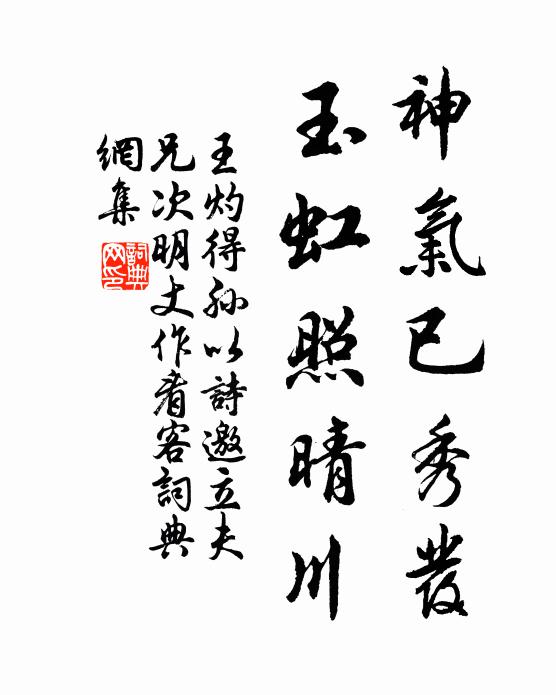 神氣已秀發
玉虹照晴川
王灼得孙以詩邀立夫
兄次明丈作者客詞典
網集
詞典網印